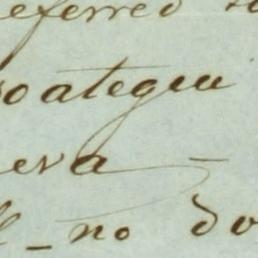 eferred to
oategui
eva -
ll - no do